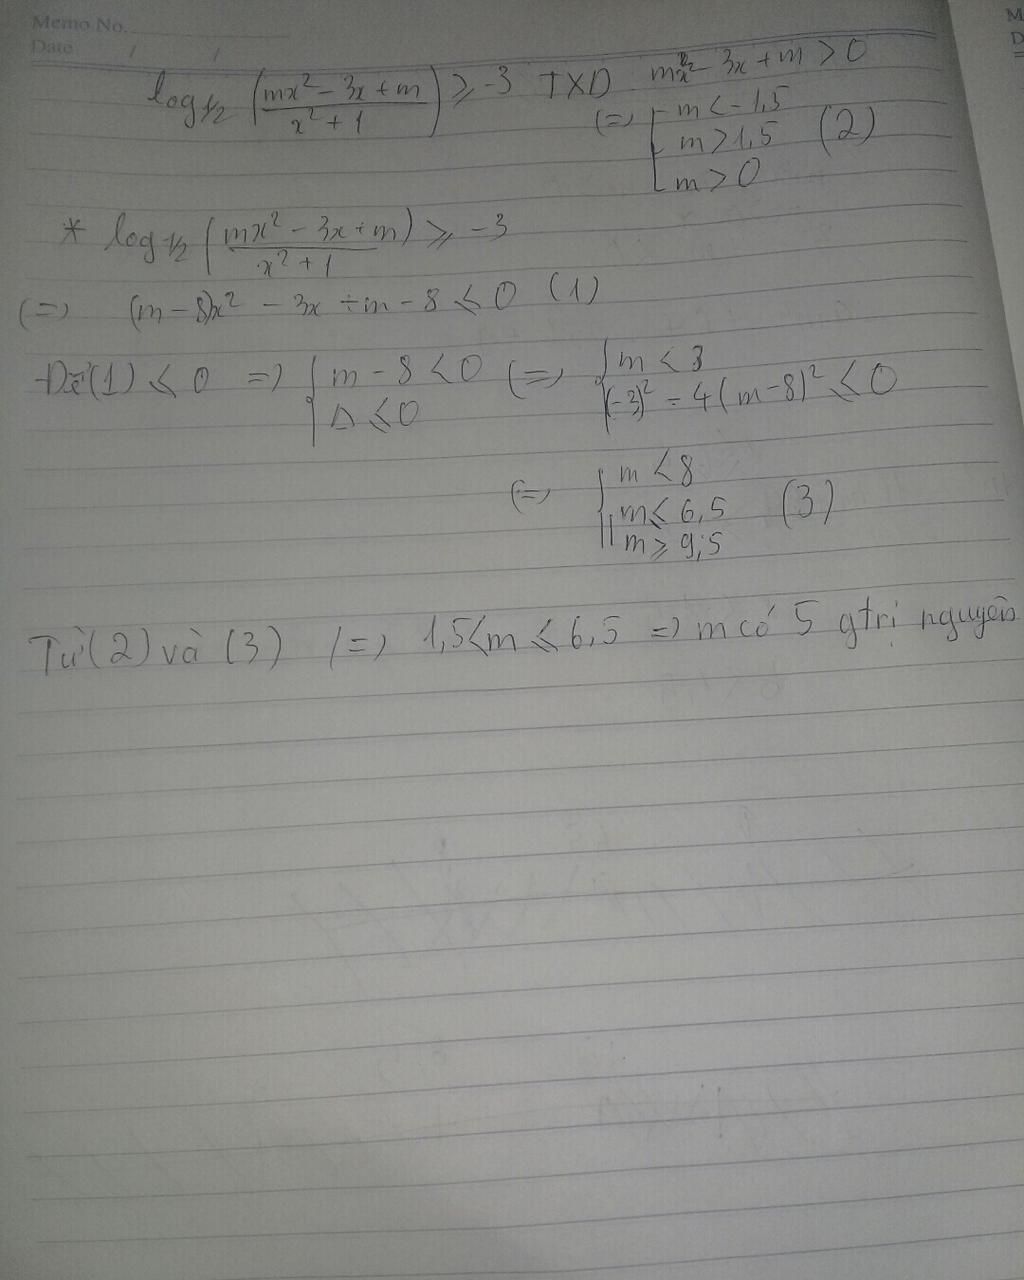 Memo No.
Date / /
M
D
log_{1/2} ( (mx² - 3x + m) / (x² + 1) ) ⩾ -3 TXD mx² - 3x + m > 0
(=) [ m < -1,5
m > 1,5 (2)
m > 0
* log_{1/2} ( (mx² - 3x + m) / (x² + 1) ) ⩾ -3
(=) (m - 8)x² - 3x + m - 8 ⩽ 0 (1)
Để (1) ⩽ 0 =) { m - 8 < 0 (=) { m < 8
Δ ⩽ 0 (-3)² - 4(m-8)² ⩽ 0
(=) { m < 8
m ⩽ 6,5 (3)
m ⩾ 9,5
Từ (2) và (3) (=) 1,5 < m ⩽ 6,5 =) m có 5 gtrị nguyên